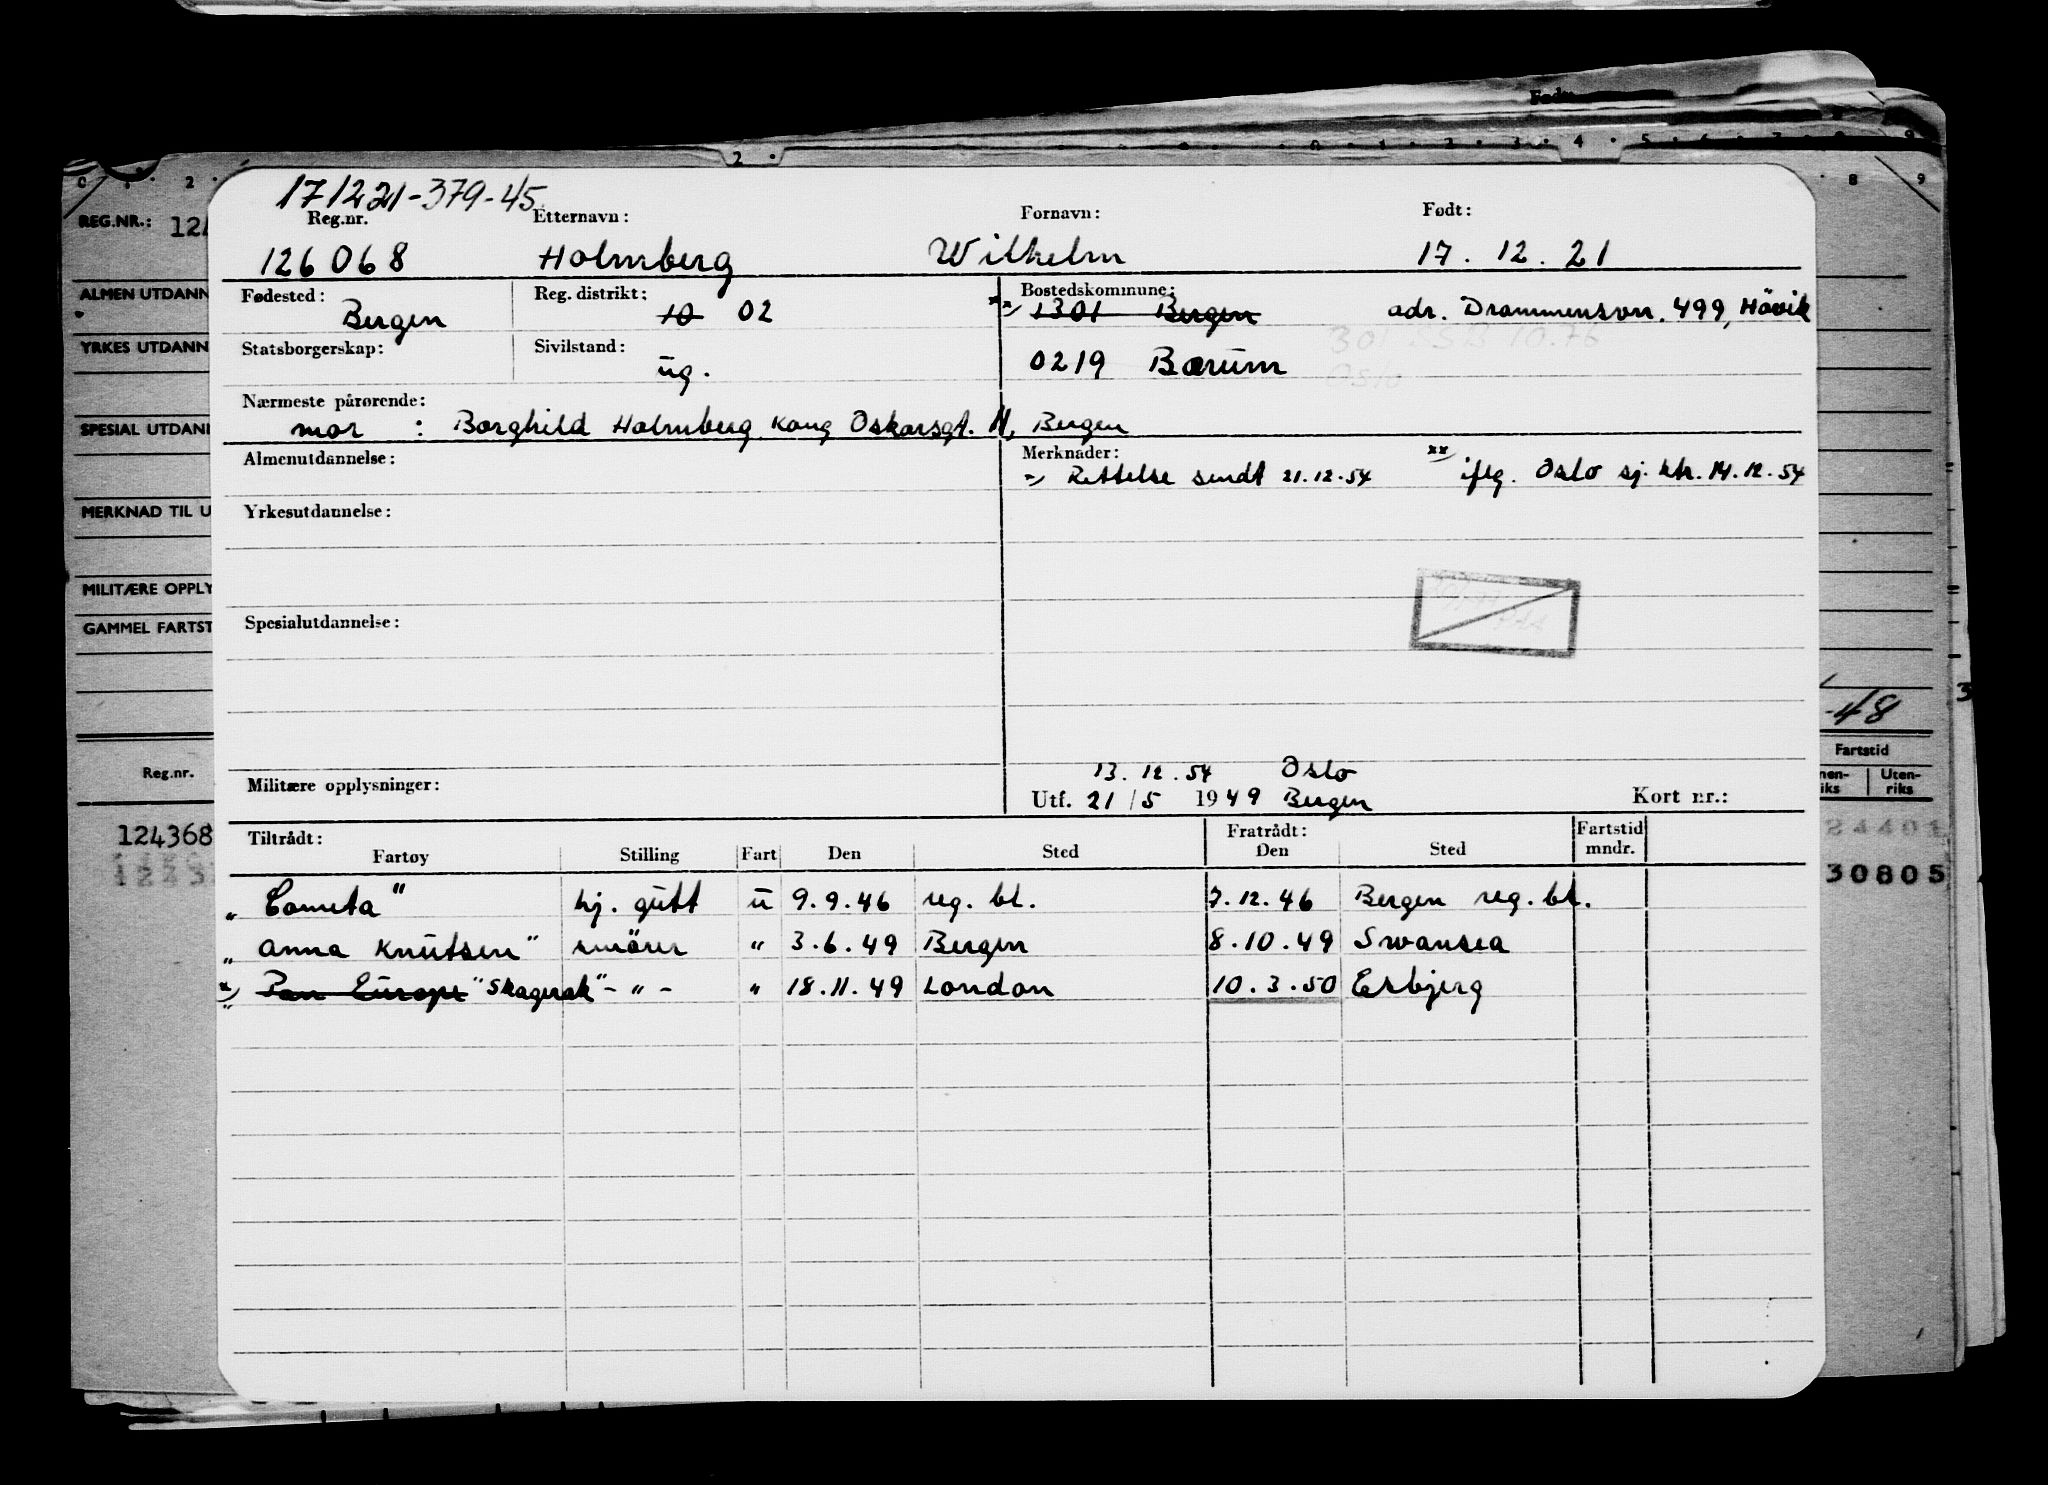 Født:
2 .
0 . 1 . 2 . 3 . 4 . 5 . 6 . 7 . 8 9
0 1 . 2 . 8 9
171221-379-45
Reg.nr. Etternavn: Fornavn: Født:
126068 Holmberg Wilhelm 17.12.21
Fødested: Reg. distrikt: Bostedskommune:
Bergen 10 02 1301 Bergen adr. Drammensvn. 499, Hövik
Statsborgerskap: Sivilstand:
ug. 0219 Bærum
Oslo
Nærmeste pårørende:
mor : Borghild Holmberg Kong Oskarsgt. 11, Bergen
Almenutdannelse: Merknader:
x) Rettelse sendt 21.12.54 xx) iflg. Oslo sj. ktr. 14.12.54
Yrkesutdannelse:
Spesialutdannelse:
13.12.54 Oslo
Militære opplysninger: Utf. 21/5 1949 Bergen Kort nr.:
Tiltrådt: Fratrådt: Fartstid
Fartøy Stilling Fart Den Sted Den Sted mndr.
"Cometa" hj. gutt u 9.9.46 reg. bl. 7.12.46 Bergen reg. bl.
"Anna Knutsen" smörer " 3.6.49 Bergen 8.10.49 Swansea
x) "Pan Europe "Skagerak" - " - " 18.11.49 London 10.3.50 Esbjerg
REG.NR.: 12
ALMEN UTDANN
YRKES UTDANN
SPESIAL UTDANI
MERKNAD TIL U
MILITÆRE OPPLY
GAMMEL FARTST
Reg.nr.
124368
-48
Fartstid
nen- Uten-
iks riks
24401
30805
3